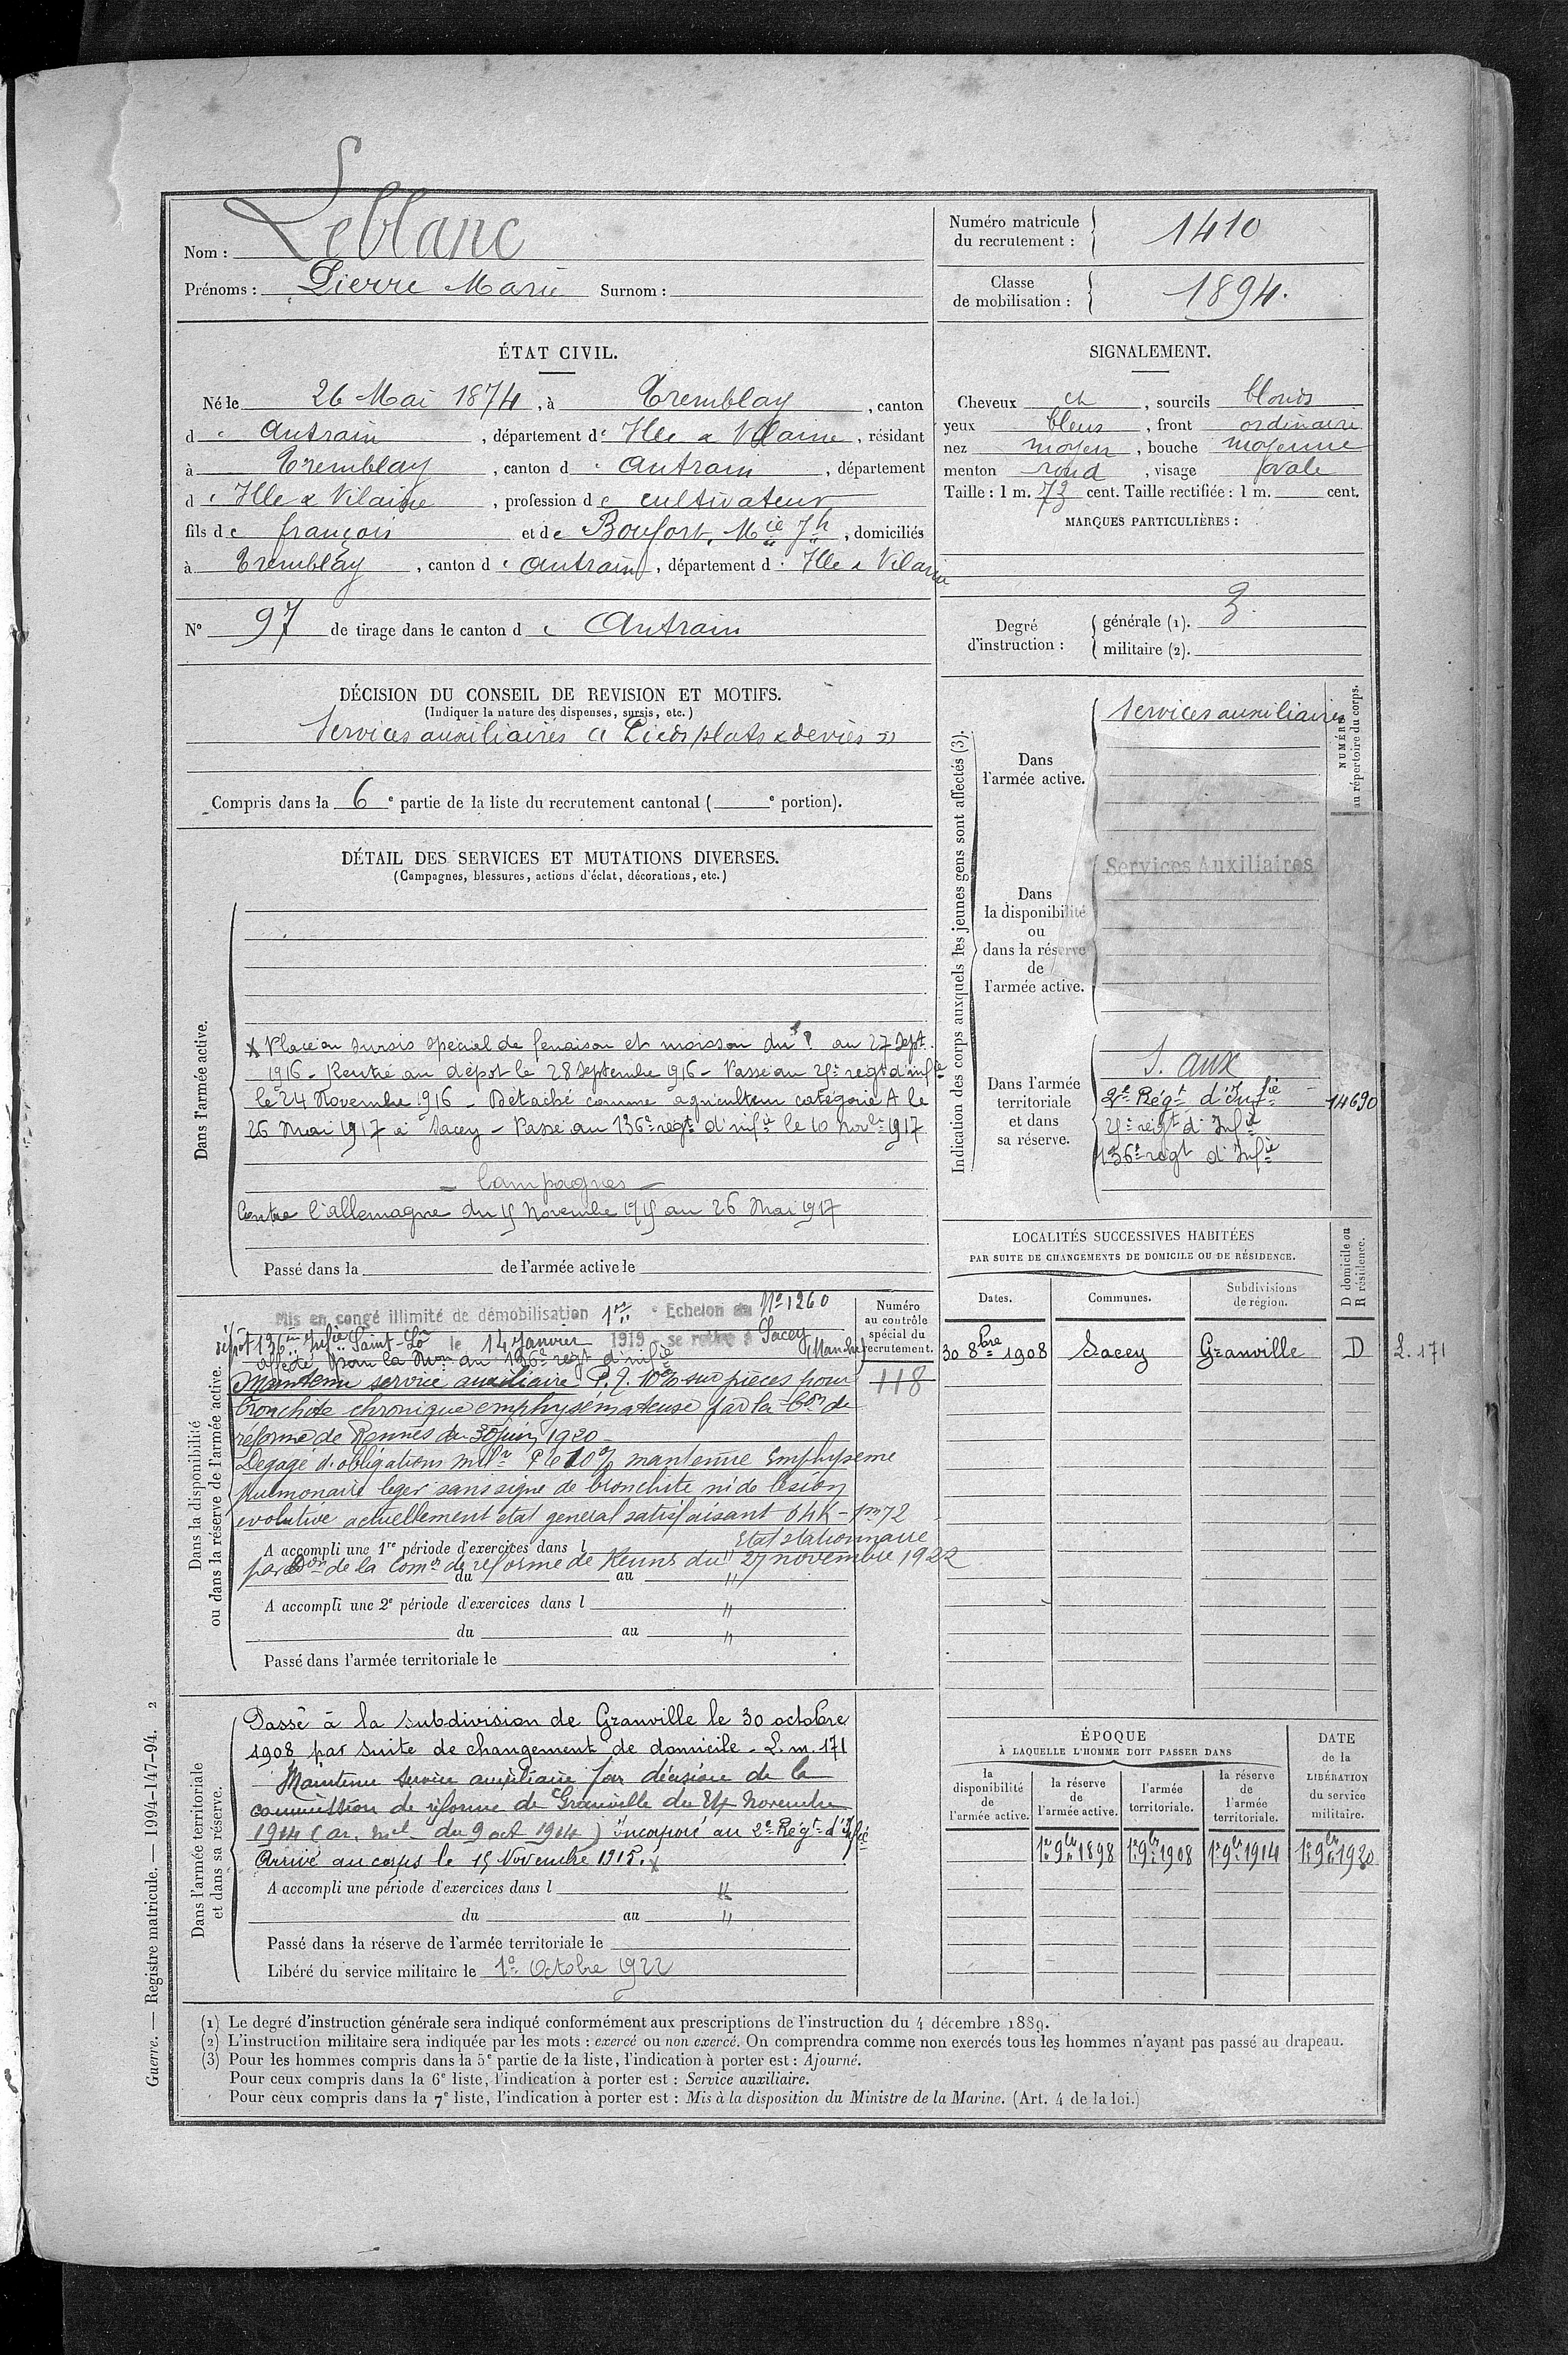 Nom : Leblanc
Prénoms : Pierre Marie Surnom :
Numéro matricule
du recrutement : 1410
Classe
de mobilisation : 1894.
ÉTAT CIVIL.
Né le 26 Mai 1874, à Tremblay, canton
d e Antrain, département de Ille & Vilaine, résidant
à Tremblay, canton d e Antrain, département
d e Ille & Vilaine, profession de cultivateur
fils de françois et de Boufort, Mie Jh, domiciliés
à Tremblay, canton d e Antrain, département d e Ille & Vilaine
N° 97 de tirage dans le canton d e Antrain
SIGNALEMENT.
Cheveux ch, sourcils blonds
yeux bleus, front ordinaire
nez moyen, bouche moyenne
menton rond, visage ovale
Taille : 1 m. 73 cent. Taille rectifiée : 1 m. cent.
MARQUES PARTICULIÈRES :
Degré
d'instruction :
générale (1). 3
militaire (2).
DÉCISION DU CONSEIL DE REVISION ET MOTIFS.
(Indiquer la nature des dispenses, sursis, etc.)
Services auxiliaires « Pieds plats & deviés »
Compris dans la 6e partie de la liste du recrutement cantonal ( e portion).
DÉTAIL DES SERVICES ET MUTATIONS DIVERSES.
(Campagnes, blessures, actions d'éclat, décorations, etc.)
Dans l'armée active.
x Placé en sursis spécial de fenaison et moisson du au 27 Sept.
1916 - Rentré au dépôt le 28 Septembre 1916 - Passé au regt d'infie
le 24 Novembre 1916 - Détaché comme agriculteur catégorie A le
26 Mai 1917 à Sacey - Passé au 136e regt d'infie le 10 Novbre 1917
- Campagnes -
Contre l'allemagne du 15 Novembre 1915 au 26 Mai 1917
Passé dans la de l'armée active le
Indication des corps auxquels les jeunes gens sont affectés (3).
NUMÉRO
au répertoire du corps.
Dans
l'armée active.
Services auxiliaires
Dans
la disponibilité
ou
dans la réserve
de
l'armée active.
Services Auxiliaires
Dans l'armée
territoriale
et dans
sa réserve.
S. aux
2e Régt d'Infie 14690
regt d'Infie
136e regt d'Infie
LOCALITÉS SUCCESSIVES HABITÉES
PAR SUITE DE CHANGEMENTS DE DOMICILE OU DE RÉSIDENCE.
Dates. Communes. Subdivisions
de région.
D domicile ou
R résidence.
30 8bre 1908 Sacey Granville D L. 171
Dans la disponibilité
ou dans la réserve de l'armée active.
Mis en congé illimité de démobilisation 1er Echelon du No 1260
dépôt 136me Infie Saint-Lô le 14 Janvier 1919 - se retire à Sacey
(Manche)
affecté pour la Mon au 136e regt d'infie
Numéro
au contrôle
spécial du
recrutement.
118
Maintenu service auxiliaire P.I. 10% sur pièces pour
bronchite chronique emphysémateuse par la Con de
réforme de Rennes du 30 Juin 1920 -
Dégagé d'obligations milres 10% maintenue Emphyseme
pulmonaire leger sans signe de bronchite ni de lésion
evolutive actuellement etat general satisfaisant 64K - 1m72
Etat stationnaire
A accompli une 1re période d'exercices dans l
par Don de la Comon de reforme de Rennes du 27 novembre 1922
du au "
A accompli une 2e période d'exercices dans l "
du au "
Passé dans l'armée territoriale le
Dans l'armée territoriale
et dans sa réserve.
Passé à la subdivision de Granville le 30 octobre
1908 par suite de changement de domicile - L. m. 171
Maintenu Service auxiliaire par décision de la
commission de réforme de Granville du 24 Novembre
1914 (ar. mel du 9 oct 1914) incorporé au 2e Régt d'Infie
Arrivé au corps le 15 Novembre 1915. x
A accompli une période d'exercices dans l "
du au "
Passé dans la réserve de l'armée territoriale le
Libéré du service militaire le 1er Octobre 1922
ÉPOQUE
À LAQUELLE L'HOMME DOIT PASSER DANS
DATE
de la
LIBÉRATION
du service
militaire.
la
disponibilité
de
l'armée active.
la réserve
de
l'armée active.
l'armée
territoriale.
la réserve
de
l'armée
territoriale.
1er 9bre 1898 1er 9bre 1908 1er 9bre 1914 1er 9bre 1920
(1) Le degré d'instruction générale sera indiqué conformément aux prescriptions de l'instruction du 4 décembre 1889.
(2) L'instruction militaire sera indiquée par les mots : exercé ou non exercé. On comprendra comme non exercés tous les hommes n'ayant pas passé au drapeau.
(3) Pour les hommes compris dans la 5e partie de la liste, l'indication à porter est : Ajourné.
Pour ceux compris dans la 6e liste, l'indication à porter est : Service auxiliaire.
Pour ceux compris dans la 7e liste, l'indication à porter est : Mis à la disposition du Ministre de la Marine. (Art. 4 de la loi.)
Guerre. — Registre matricule. — 1994-147-94. 2